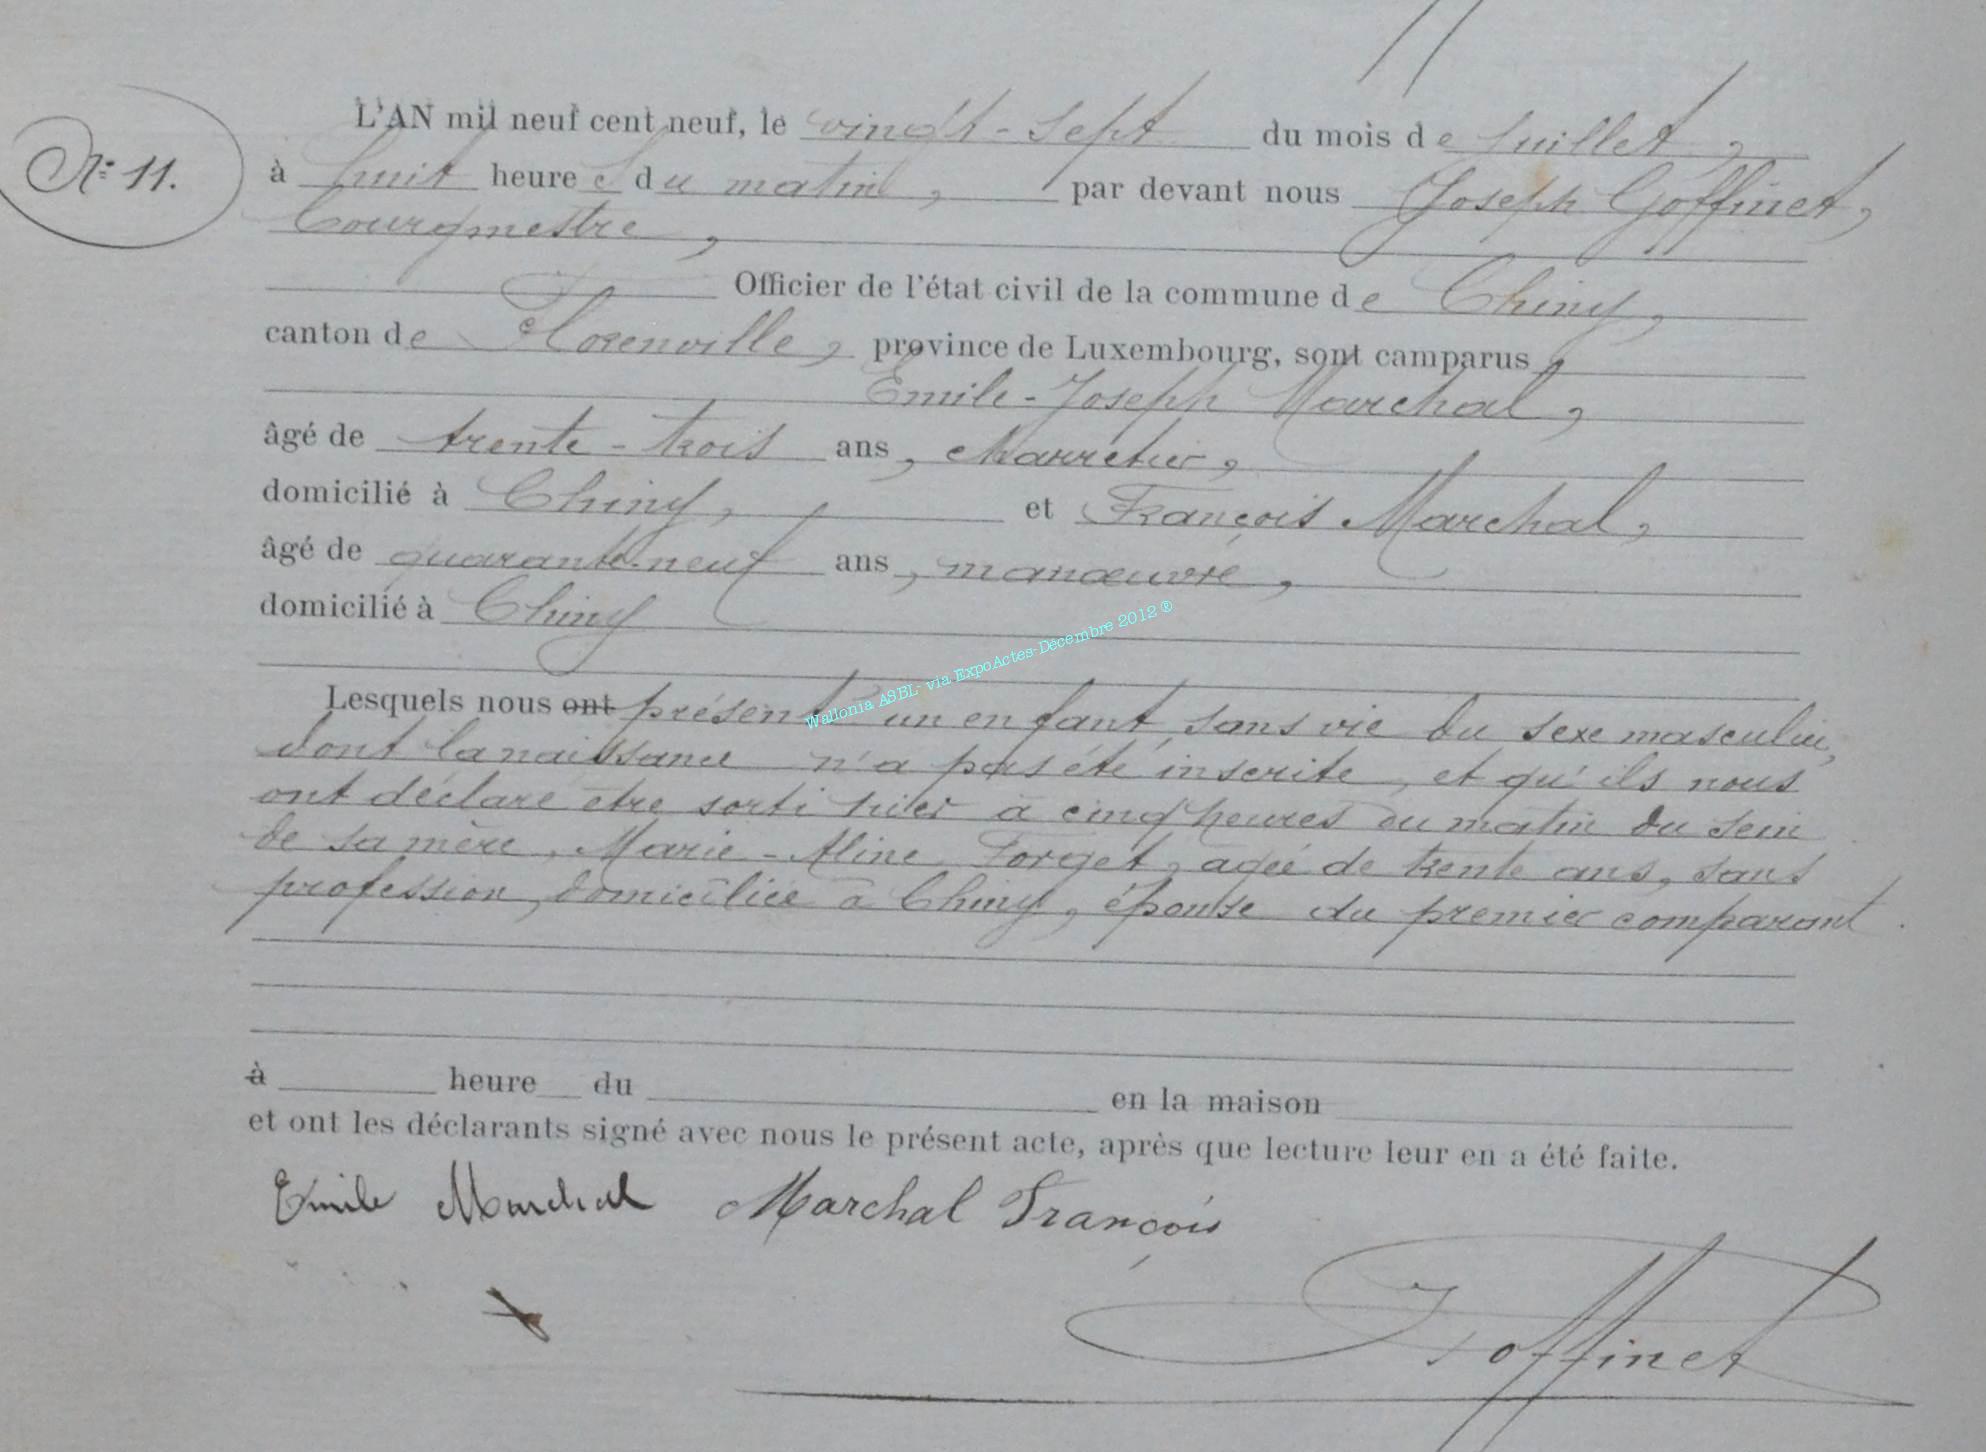 N° 11.
L'AN mil neuf cent neuf, le vingt-sept du mois de Juillet,
à huit heures du matin, par devant nous Joseph Goffinet,
bourgmestre,
Officier de l'état civil de la commune de Chiny,
canton de Florenville, province de Luxembourg, sont camparus,
Emile-Joseph Marchal,
âgé de trente-trois ans, Marretier,
domicilié à Chiny, et François Marchal,
âgé de quarante-neuf ans, manœuvre,
domicilié à Chiny
Lesquels nous ont présenté un enfant sans vie du sexe masculin,
dont la naissance n'a pas été inscrite, et qu'ils nous
ont déclaré être sorti hier à cinq heures du matin du sein
de sa mère, Marie-Aline Forget, agée de trente ans, sans
profession, domiciliée à Chiny, épouse du premier comparant.
à heure du en la maison
et ont les déclarants signé avec nous le présent acte, après que lecture leur en a été faite.
Emile Marchal Marchal François
J Goffinet
Wallonia ASBL- via ExpoActes-Décembre 2012 ®